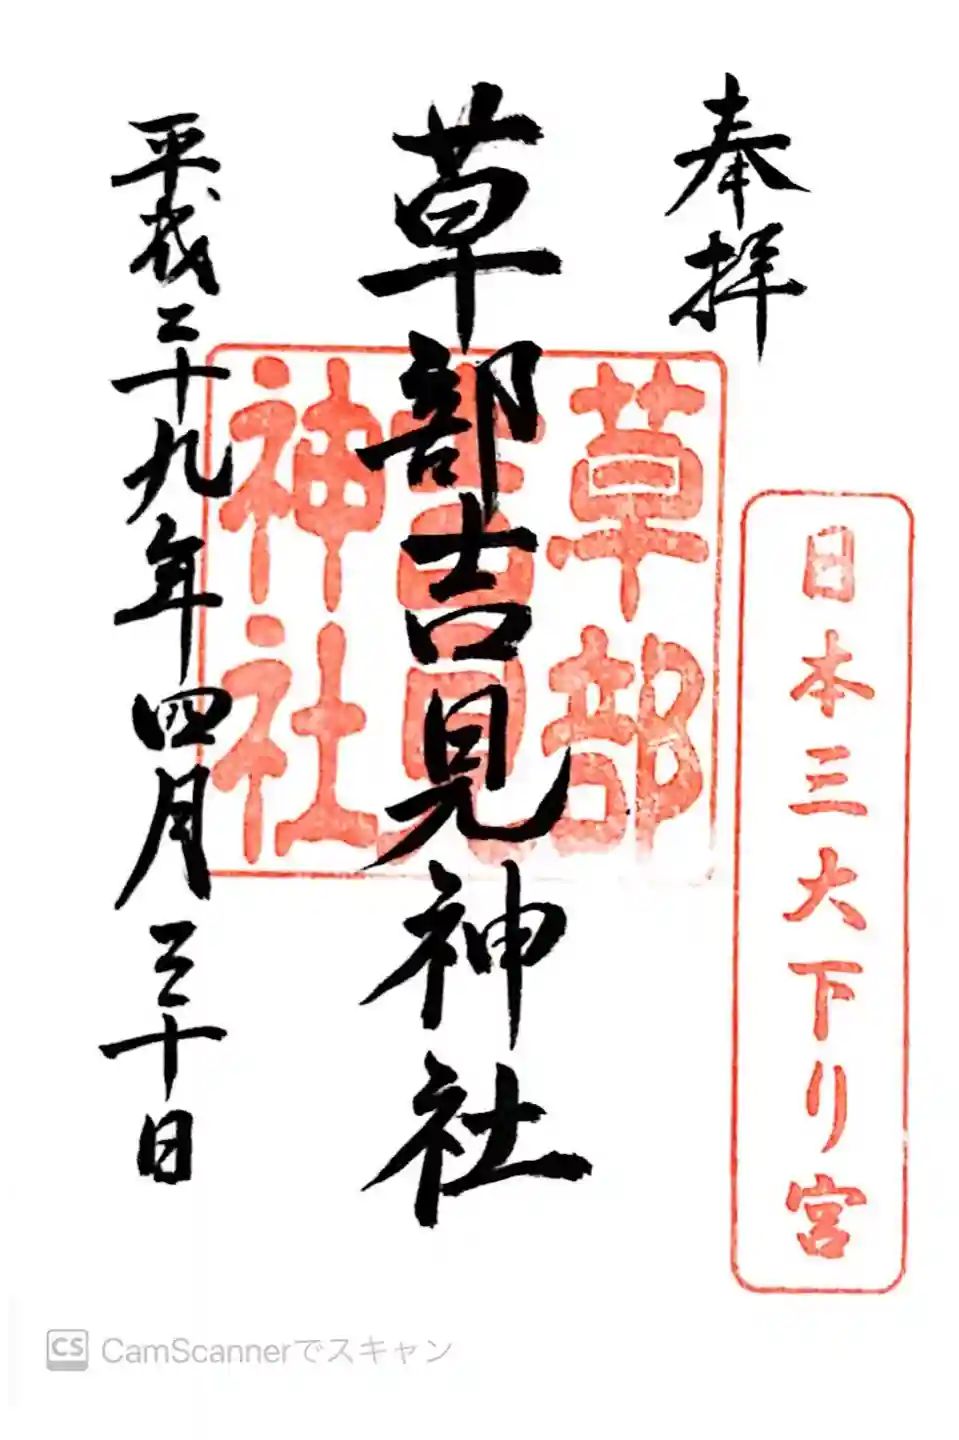 奉拝
日本三大下り宮
草部吉見神社
草部
吉見
神社
平成二十九年四月三十日
CS CamScannerでスキャン